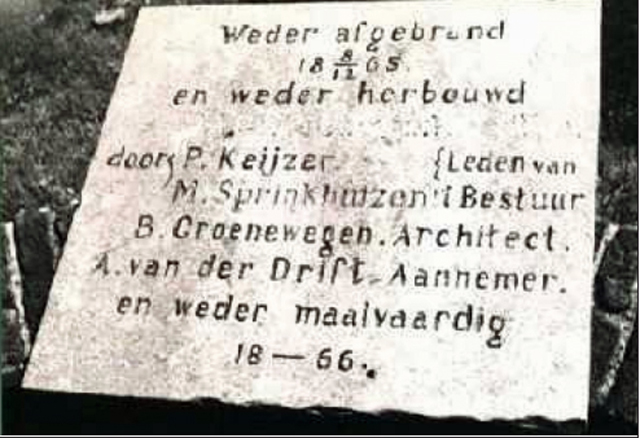 Weder afgebrand
18 8/12 65.
en weder herbouwd
door { P. Keijzer. { Leden van
M. Sprinkhuizen 't Bestuur
B. Groenewegen. Architect.
A. van der Drift. Aannemer.
en weder maalvaardig
18 — 66.